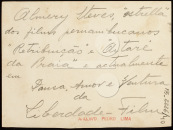 Almery Steves, "estrella
dos films pernambucanos
"Retribuição" e Aytaré
da Praia" e actualmente
em
Dansa, Amor e Ventura
da
Liberdade-Film
PEDRO LIMA